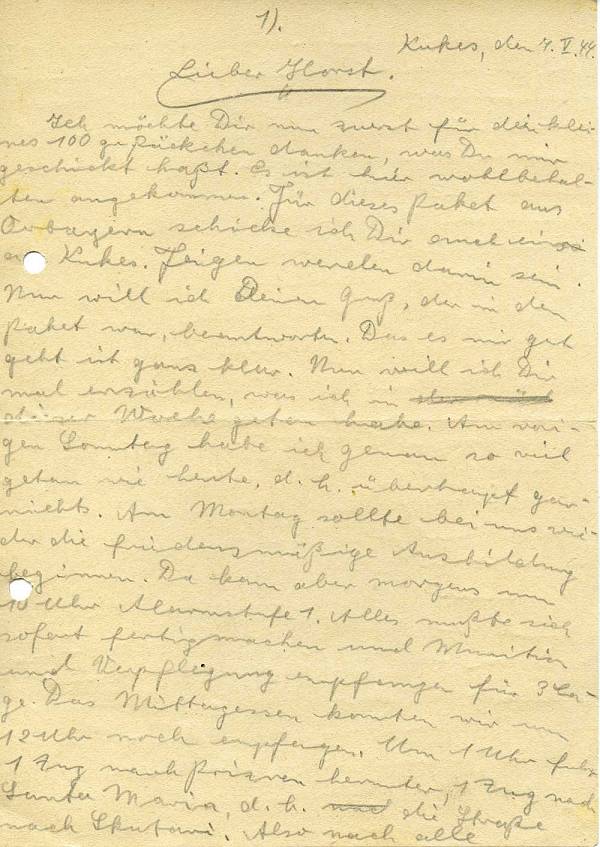 1).
Kukes, den 7. V. 44.
Lieber Horst.
Ich möchte Dir nun zuerst für dein klei-
nes 100 gr. Päckchen danken, was Du mir
geschickt haßt. Es ist hier wohlbehal-
ten angekommen. Für dieses Paket aus
schicke ich Dir auch eins
aus Kukes. Feigen werden darin sein.
Nun will ich Deinen Gruß, der in den
Paket war, beantworten. Das es mir gut
geht ist ganz klar. Nun will ich Dir
mal erzählen, was ich in
dieser Woche getan habe. Am vori-
gen Sonntag habe ich genau so viel
getan wie heute, d. h. überhaupt gar-
nichts. Am Montag sollte bei uns wie-
der die friedensmäßige Ausbildung
beginnen. Da kam aber morgens um
10 Uhr Alarmstufe 1. Alles mußte sich
sofort fertigmachen und Munition
und Verpflegung empfangen für 3 Ta-
ge. Das Mittagessen konnten wir um
12 Uhr noch empfangen. Um 1 Uhr fuhr
1 Zug nach Prizren herunter, 1 Zug nach
Santa Maria, d. h. die Straße
nach Skutari. Also nach alle